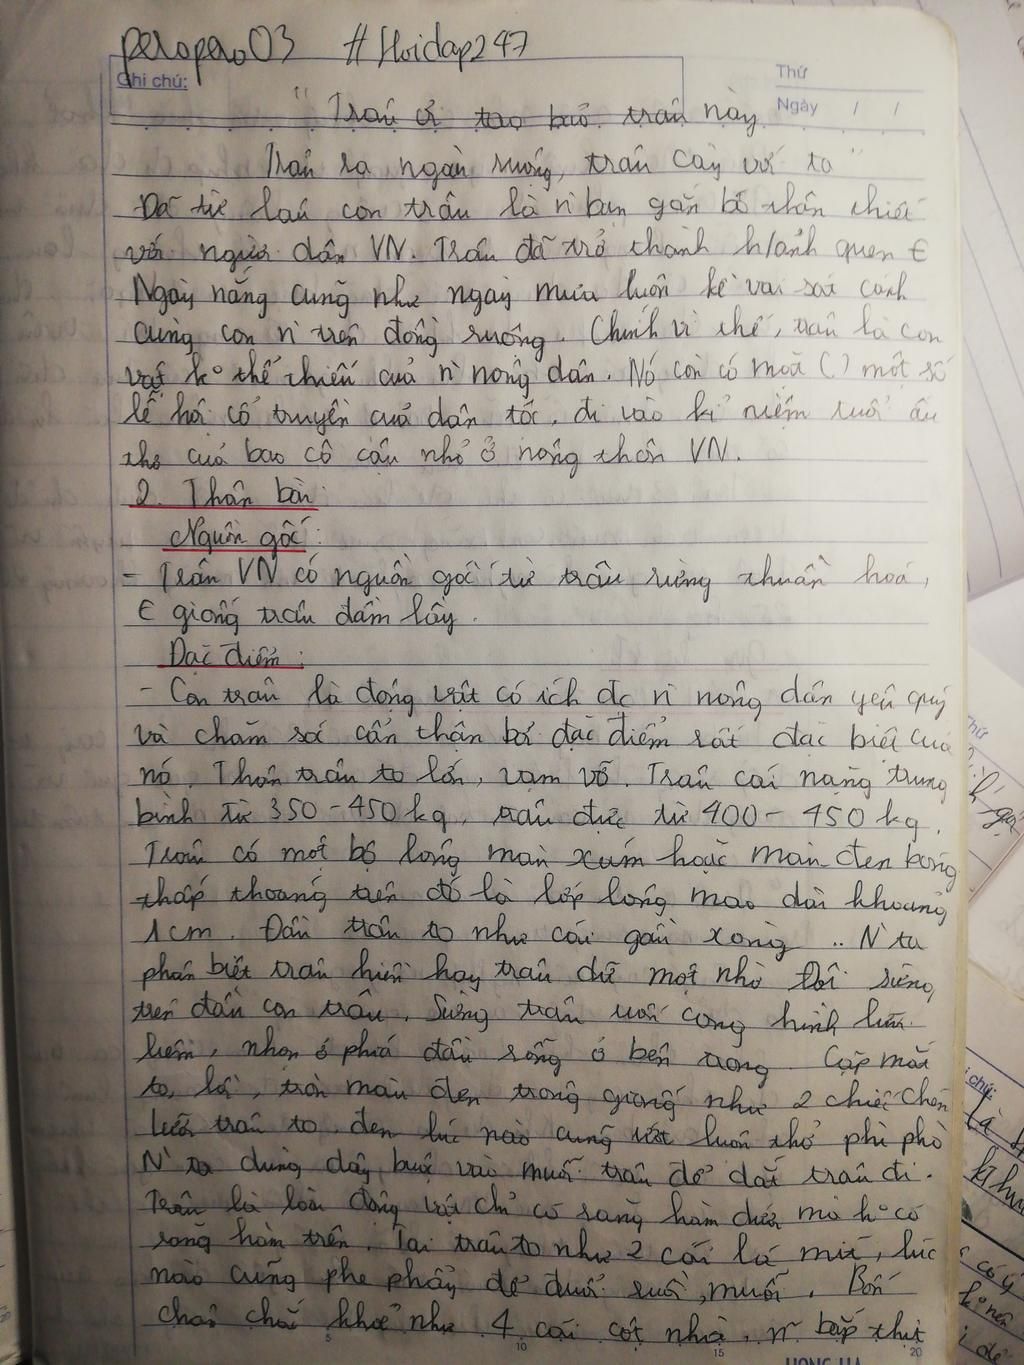 peropero03 #Hoidap247
Ghi chú:
Thứ
Ngày / /
" Trâu ơi ta bảo trâu này
Trâu ra ngoài ruộng, trâu cày với ta "
Đã từ lâu con trâu là n' bạn gắn bó thân thiết
với người dân VN. Trâu đã trở thành h/ảnh quen €
Ngày nắng cũng như ngày mưa luôn kề vai sát cánh
cùng con n' trên đồng ruộng. Chính vì thế, trâu là con
vật k° thể thiếu của n' nông dân. Nó còn có mặt ( ) một số
lễ hội cổ truyền của dân tộc, đi vào kỉ niệm tuổi ấu
thơ của bao cô cậu nhỏ ở nông thôn VN.
2. Thân bài:
Nguồn gốc:
- Trâu VN có nguồn gốc từ trâu rừng thuần hoá,
€ giống trâu đầm lầy.
Đặc điểm:
- Con trâu là động vật có ích đc n' nông dân yêu quý
và chăm sóc cẩn thận bởi đặc điểm rất đặc biệt của
nó. Thân trâu to lớn, vạm vỡ. Trâu cái nặng trung
bình từ 350 - 450 kg, trâu đực từ 400 - 450 kg.
Trâu có một bộ lông màu xám hoặc màu đen bóng
thấp thoáng trên đó là lớp lông mao dài khoảng
1cm. Đầu trâu to như cái gàu xòng .. N' ta
phân biệt trâu hiền hay trâu dữ một nhờ đôi sừng
trên đầu con trâu. Sừng trâu uốn cong hình lưỡi
liềm, nhọn ở phía đầu rỗng ở bên trong. Cặp mắt
to, lồi, tròn màu đen trông giống như 2 chiếc chén
Mũi trâu to, đen lúc nào cũng ướt luôn thở phì phò
N' ta dùng dây buộc vào mũi trâu để dắt trâu đi.
Trâu là loài động vật chỉ có răng hàm dưới mà k° có
răng hàm trên. Tai trâu to như 2 cái lá mít, lúc
nào cũng phe phẩy để đuổi ruồi, muỗi. Bốn
chân chắc khoẻ như 4 cái cột nhà, n~ bắp thịt
5 10 15 20
HONG HA